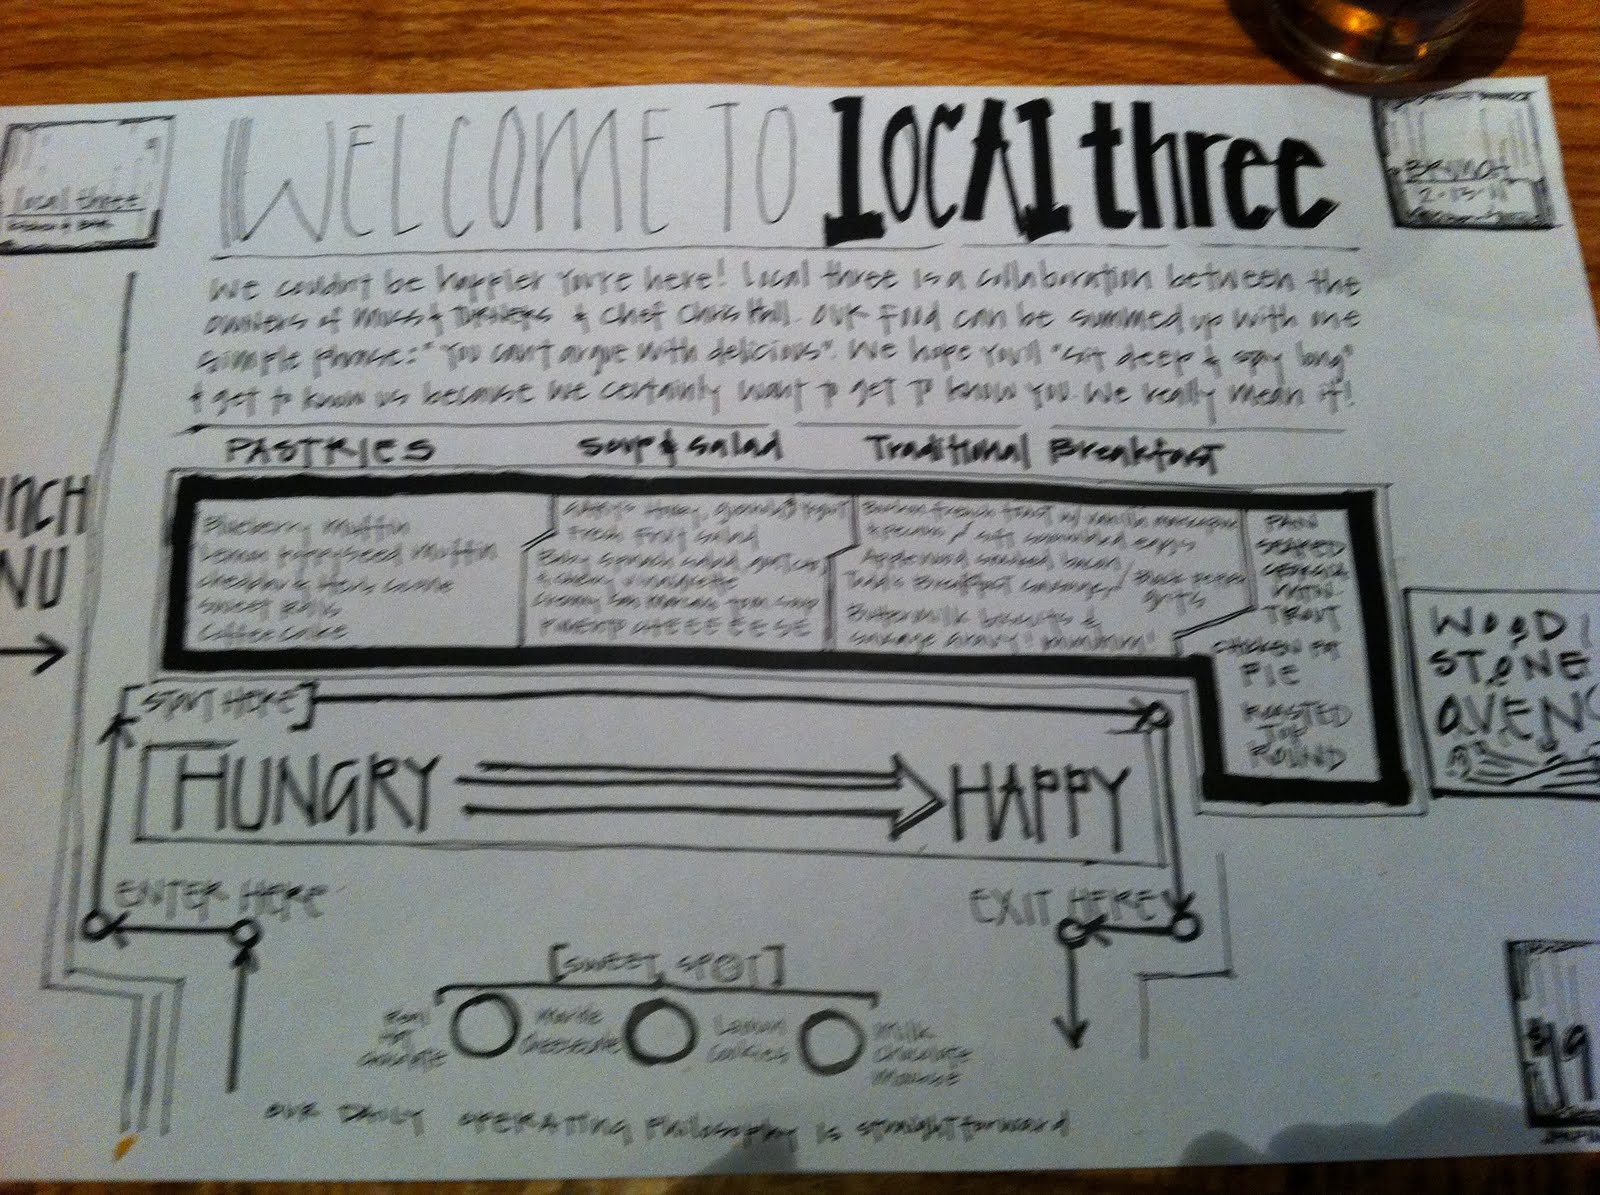 WELCOME TO local three
local three
BRUNCH
2.13.11
We couldn't be happier you're here! Local three is a collaboration between the
owners of Muss & Turner's & Chef Chris Hall. Our food can be summed up with one
simple phrase: "You can't argue with delicious". We hope you'll "sit deep & stay long"
& get to know us because we certainly want to get to know you. We really mean it!
PASTRIES
Blueberry Muffin
Lemon Poppyseed Muffin
Cheddar & Herb Scone
Sweet Rolls
Coffee Cake
Soup & Salad
Fresh Fruit Salad
Baby spinach salad,
vinaigrette
Creamy San Marzano Tom Soup
PIMENTO CHEEEEEESE
Traditional Breakfast
french toast w/ vanilla mascarpone
& pecans / soft scrambled eggs
Applewood smoked bacon
Todd's Breakfast sausage / Black pepper
grits
Buttermilk biscuits &
sausage gravy! mmmmm!
PAN
SEARED
GEORGIA
MTN.
TROUT
CHICKEN POT
PIE
ROASTED
TOP
ROUND
UNCH
NU
WOOD
STONE
OVEN
[START HERE]
HUNGRY HAPPY
ENTER HERE
EXIT HERE
[SWEET SPOT]
Hot
Chocolate
Cheesecake
Lemon
Cookies
Milk
Chocolate
Mousse
$19
OUR DAILY OPERATING Philosophy is straightforward